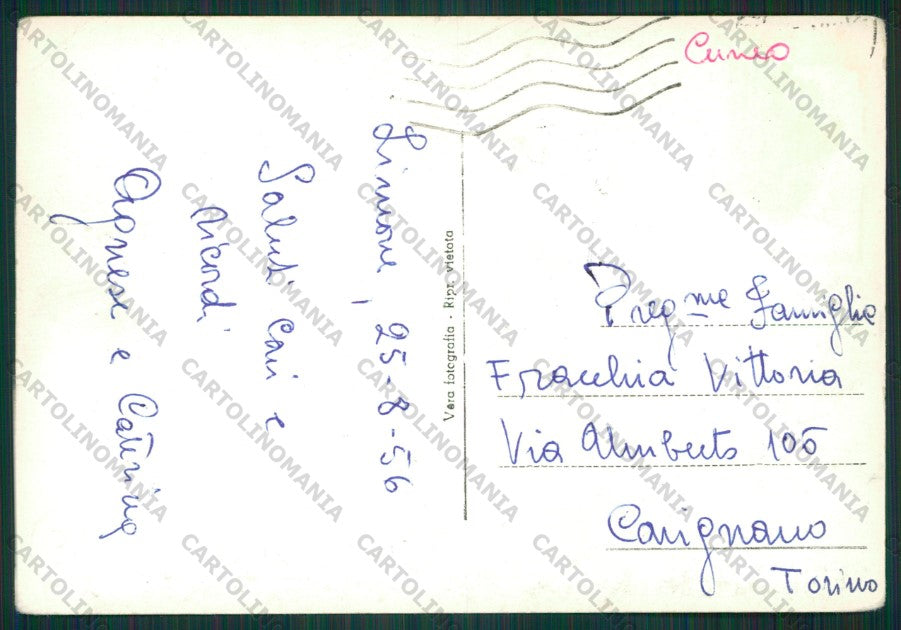 Cuneo
Limone, 25-8-56
Saluti Cari e
ricordi
Agnese e Caterina
Vera fotografia - Ripr. vietata
Preg.me Famiglie
Fracchia Vittoria
Via Umberto 105
Carignano
Torino
CARTOLINOMANIA